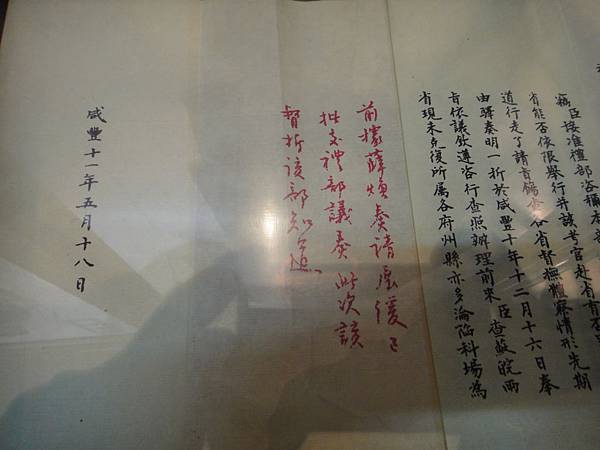 竊臣接准禮部咨稱本部
省能否依限舉行并該考官赴省有否
道行走了請旨飭查各省督撫體察情形先期
由驛奏明一折於咸豐十年十二月十六日奉
旨依議欽遵咨行查照辦理前來臣查蘇皖兩
省現未克復所属各府州縣亦多淪陷科場為
前據薛煥奏請展緩已
批交禮部議奏此次該
督折該部知道
咸豐十一年五月十八日